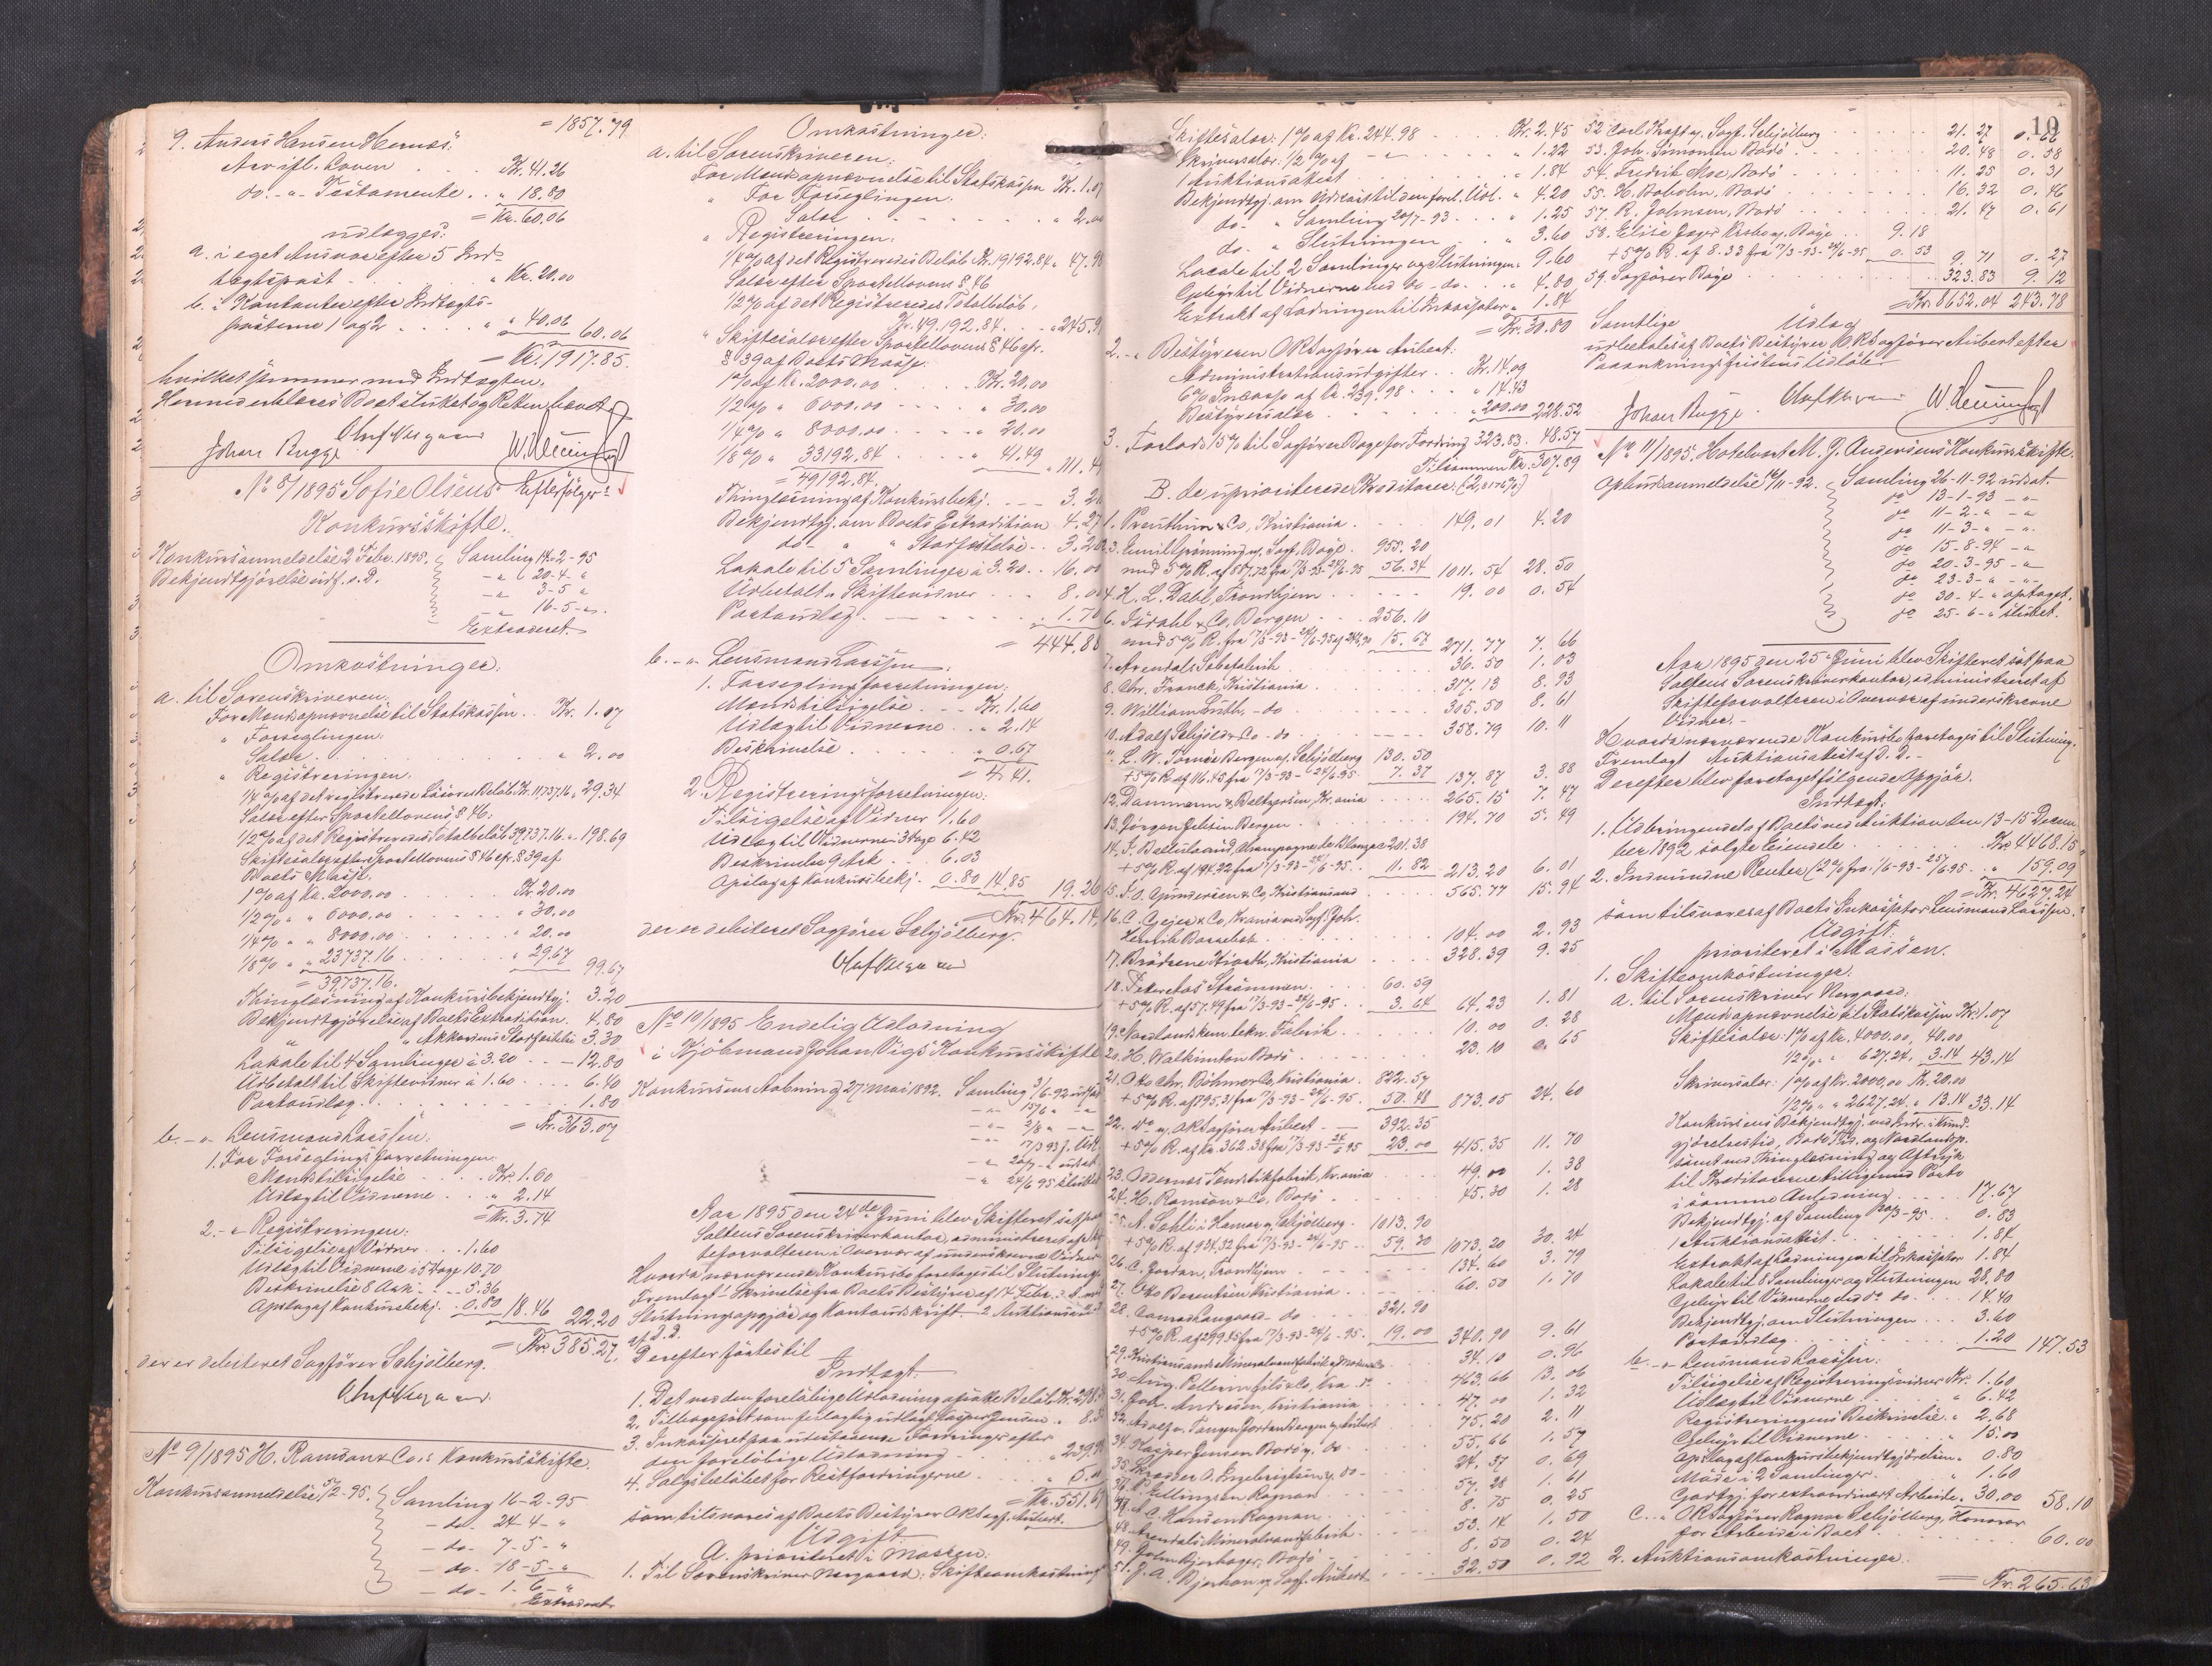 = 1857.79
9. Anders Hansen Hernæs:
Arv ifl. Loven . . . Kr. 41.26
do. -"- Testamente . . " 18.80
= Kr. 60.06
udlægges:
a. i eget Ansvar efter 5 Ind-
tægtspost . . . " Kr. 20.00
b. i Kontanter efter Indtægts-
posterne 1 og 2 . . . " 40.06 60.06
= Kr. 1917.85.
hvilket stemmer med Indtægten.
Hermed erklæres Boet sluttet og Retten hævet
Johan Bugge
No 8/1895 Sofie Olsens Efterfølgers
Konkursskifte.
Konkursanmeldelse 2 Febr. 1895. Samling 14-2-95
Bekjendtgjørelse udf. s. D. -"- 20-4- "
-"- 3-5 "
-"- 16-5- "
Extraderet.
Omkostninger:
a. til Sorenskriveren:
For Mændsopnævnelse til Statskassen . . Kr. 1.07
" Forseglingen:
Salær . . . " 2.00
" Registreringen.
1/4 % af det registrerede Løsøres Beløb Kr. 11737.16 " 29.34
Salær efter Sportellovens § 46:
1/2 % af det Registreredes Totalbeløb 39737.16 " 198.69
Skiftesalær efter Sportellovens § 46 cfr. § 39 af
Boets Masse.
1 % af Kr. 2000.00 . . . Kr. 20.00
1/2 % " " 6000.00 . . . " 30.00
1/4 % " " 8000.00 . . . " 20.00
1/8 % " " 23737.16 . . . " 29.67 99.67
= 39737.16.
Thinglæsning af Konkursbekjendtgj. 3.20
Bekjendtgjørelse af Boets Extradition. 4.80
" Akkordens Stadfæstelse 3.30
Lokale til 4 Samlinger à 3.20 . . - 12.80
Udbetalt til Skiftevidner à 1.60 . . . 6.40
Portoudlæg . . . 1.80
= Kr. 363.07
b. -"- Lensmand Larssen:
1. For Forseglingsforretningen:
Mændstilsigelse . . . Kr. 1.60
Udlæg til Vidnerne . . . " 2.14
= Kr. 3.74
2. -"- Registreringen:
Tilsigelse af Vidner . . 1.60
Udlæg til Vidnerne i 5 Dage 10.70
Beskrivelse 8 Ark . . . 5.36
Opslag af Konkursbekj. . 0.80 18.46 22.20
= Kr. 385.27.
der er debiteret Sagfører Schjølberg.
No 9/1895 H. Ramson & Co.s Konkursskifte.
Konkursanmeldelse 5/2-95. Samling 16-2-95
- do - 24-4- "
- do - 7-5- "
- do - 18-5- "
- do - 1-6- "
Extraderet
Omkostninger:
a. til Sorenskriveren:
For Mændsopnævnelse til Statskassen Kr. 1.07
" For Forseglingen:
Salær . . . " 2.00
" Registreringen:
1/4 % af det Registreredes Beløb Kr. 19192.84 " 47.98
Salær efter Sportellovens § 46
1/2 % af det Registreredes Totalbeløb,
Kr. 49.192.84. . . " 245.9
" Skiftesalær efter Sportellovens § 46 cfr.
§ 39 af Boets Masse:
1 % af Kr. 2000.00 . . . Kr. 20.00
1/2 % " 6000.00 . . . " 30.00
1/4 % " 8000.00 . . . " 20.00
1/8 % " 33192.84 . . . " 41.49 " 111.49
= 49192.84.
Thinglæsning af Konkursbekj. . . 3.20
Bekjendtgj. om Boets Extradition 4.27
do - " " Stadfæstelse . . 3.20
Lokale til 5 Samlinger à 3.20 . . 16.00
Udbetalt " Skiftevidner . . . 8.00
Portoudlæg . . . 1.70
= 444.88
b. -"- Lensmand Larssen:
1. Forseglingsforretningen:
Mændstilsigelse . . . Kr. 1.60
Udlæg til Vidnerne . . . " 2.14
Beskrivelse . . . " 0.67
= 4.41.
2. Registreringsforretningen:
Tilsigelse af Vidner 1.60
Udlæg til Vidnerne i 3 Dage 6.42
Beskrivelse 9 Ark . . . 6.03
Opslag af Konkursbekj. . 0.80 14.85 19.26
= Kr. 464.14
der er debiteret Sagfører Schjølberg.
No 10/1895 Endelig Udlodning
i Kjøbmand Johan Vigs Konkursskifte
Konkursens Aabning 27 Mai 1892. Samling 3/6-92 udsat
-"- 15/6 " -"-
-"- 2/8 " -"-
-"- 17/3 93 f. Udl.
-"- 20/7 - " udsat
-"- 24/6 95 sluttet
Aar 1895 den 24de Juni blev Skifteret sat paa
Saltens Sorenskriverkontor, administreret af Skif-
teforvalteren i Overvær af underskrevne Vidner
Hvorda nærværende Konkursbo foretoges til Slutning.
Fremlagt: Skrivelse fra Boets Bestyrer af 14 Febr. d. A. med
Slutningsopgjør og Kontoudskrift. 2 Auktionsattest
af d. D.
Derefter førtes til
Indtægt:
1. Det ved den foreløbige Udlodning afsatte Beløb Kr. 298.
2. Tilbageført som feilagtig udlagt Kasper Jensen . " 8.3
3. Inkasseret paa udestaaende Fordringer efter
den foreløbige Udlodning . . . " 239.98
4. Salgsbeløbet for Restfordringerne . . . " 5.00
= Kr. 551.67
som tilsvares af Boets Bestyrer ORSagf. Aubert.
Udgift
A. prioriteret i Massen:
1. Til Sorenskriver Norgaard: Skifteomkostninger
Skiftesalær: 1 % af Kr. 244.98 . . . Kr. 2.45
Skriversalær: 1/2 % af -"- . . . " 1.22
1 Auktionsattest . . . " 1.84
Bekjendtgj. om Udkast til den forel. Udl. . " 4.20
do - " Samling 20/7-93 . . . " 1.25
do - " Slutningen . . . " 3.60
Locale til 2 Samlinger og Slutningen " 9.60
Gebyr til Vidnerne ved do - do . . " 4.80
Extrakt af Ladningen til Inkassator " 1.84
= Kr. 30.80
2. -"- Bestyreren ORSagfører Aubert:
Administrationsudgifter . . Kr. 14.09
6 % Incasso af Kr. 239.98 . . . " 14.43
Bestyrersalær . . . " 200.00 228.52
3. Forlods 15 % til Sagfører Bøge for Fordring 323.83. 48.57
Tilsammen Kr. 307.89
B. de uprioriterede Kreditorer. (2,8176 %)
1. Preuthun & Co, Kristiania . . . 149.01 4.20
3. Emil Grønning v. Sagf. Bøge . 955.20
med 5 % R. af 887.72 fra 17/3-93-24/6-95 56.34 1011.54 28.50
4. H. L. Dahl, Trondhjem . . . 19.00 0.54
6. Isdahl & Co, Bergen . . . 256.10
med 5 % R. fra 17/3-93-24/6-95 15.67 271.77 7.66
7. Arendals Sæbefabrik . . . 36.50 1.03
8. Chr. Franck, Kristiania . . . 317.13 8.93
9. William Luth, - do . . . 305.50 8.61
10. Adolf Schjøld & Co - do . . . 358.79 10.11
" L. W. Tornøe Bergen v. Sagf. Schjølberg 130.50
+ 5 % R. af 116.45 fra 17/3-93-24/6-95 7.37 137.87 3.88
12. Dammann & Baltzersen, Kr.ania . . . 265.15 7.47
13. Jørgen Jebsen Bergen . . . 194.70 5.49
14. 201.38
+ 5 % R. af 194.22 fra 17/3-93-24/6-95 . . 11.82 213.20 6.01
15. S. O. Gundersen & Co, Kristiansund . . 565.77 15.94
16. C. Geijer & Co, Kr.ania ved Sagf. Joh.
Henrik Borrebek . . . 104.00 2.93
17. Brødrene Hiorth, Kristiania . . . 328.39 9.25
18. Fetevareos Strømmen . . . 60.59
+ 5 % R. af 57.49 fra 17/3-93-24/6-95 . . 3.64 64.23 1.81
19. Nordlands kem. tekn. Fabrik . . . 10.00 0.28
20. H. Walhinton Bodø . . . 23.10 0.65
21. Otto Chr. Böhmer & Co, Kristiania . 822.57
+ 5 % R. af 795.31 fra 17/3-93-24/6-95 . 50.48 873.05 24.60
22. Do v. ORSagfører Aubert . . 392.35
+ 5 % R. af Kr. 362.38 fra 17/3-93-24/6 95 23.00 415.35 11.70
23. Oddernæs Tændstikfabrik, Kr.ania . . . 49.00 1.38
24. H. Ramson & Co, Bodø . . . 45.30 1.28
25. A. Sehli i Hamar v. Schjølberg . 1013.90
+ 5 % R. af 934.32 fra 17/3-93-24/6-95 . . 59.30 1073.20 30.24
26. C. Jordan, Trondhjem . . . 134.60 3.79
27. Otto Berentsen Kristiania . . . 60.50 1.70
28. Conrad Langaard - do . . . 321.90
+ 5 % R. af 299.85 fra 17/3-93-24/6-95. 19.00 340.90 9.61
29. Kristiansands Mineralvandfabrik . . . 34.10 0.96
30. Aug. Pellerin fils & Co, Kr.a . . . 463.66 13.06
31. Joh. Andresen, Kristiania . . . 47.00 1.32
32. 75.20 2.11
34. Kasper Jensen Bodø v. do . . . 55.66 1.57
35. Skrædder O. Ingebrigtsen v. do - . . . 24.37 0.69
36. Ellingsen Rognan . . . 57.28 1.61
47. A. C. Hansen Rognan . . . 8.75 0.25
48. Arendals Mineralvandfabrik . . . 53.14 1.50
49. John Bjorhager, Bodø . . . 8.50 0.24
51. J. A. Bjørhan v. Sagf. Aubert . . . 32.50 0.92
10
52 Carl Kraft v. Sagf. Schjølberg . . . 21.27 0.66
53. Joh. Simonsen Bodø . . . 20.48 0.58
54. Fredrik Moe, Bodø . . . 11.25 0.31
55. H. Boholm, Bodø . . . 16.32 0.46
57. R. Johnsen, Bodø . . . 21.47 0.61
58. Elise Jæger Kroho v. Bøge . . 9.18
+ 5 % R. af 8.33 fra 17/3-93-24/6-95 0.53 9.71 0.27
59. Sagfører Bøge . . . 323.83 9.12
= Kr. 8652.04 243.78
Samtlige Udlæg
udbetales af Boets Bestyrer ORSagfører Aubert efter
Paaankningsfristens Udløb.
Johan Bugge.
No 11/1895. Hotelvert M. J. Andersens Konkursskifte.
Opbudsanmeldelse 16/11-92. Samling 26-11-92 udsat.
do 13-1-93 -"-
do 11-2- " -"-
do 11-3- " -"-
do 15-8-94 -"-
do 20-3-95 -"-
do 23-3- " -"-
do 30-4- " optaget.
do 25-6- " sluttet.
Aar 1895 den 25de Juni blev Skifteret sat paa
Saltens Sorenskriverkontor, administreret af
Skifteforvalteren i Overvær af underskrevne
Vidner. -
Hvorda nærværende Konkursbo foretoges til Slutning.
Fremlagt Auktionsattest af D. D. -
Derefter blev foretaget følgende Opgjør.
Indtægt:
1. Udbringendet af Boets ved Auktion den 13-15 Decem-
ber 1892 solgte Eiendele . . . Kr. 4468.15
2. Indvundne Renter (2 % fra 1/6-93 - 25/6 95 . . " 159.09
= Kr. 4627.24
som tilsvares af Boets Inkassator Lensmand Larssen.
Udgift:
prioriteret i Massen.
1. Skifteomkostninger:
a. til Sorenskriver Norgaard:
Mændsopnævnelse til Statskassen Kr. 1.07
Skiftesalær: 1 % af Kr. 4000.00, 40.00
1/2 % " " 627.24, 3.14 43.14
Skriversalær: 1 % af Kr. 2000,00 Kr. 20.00
1/2 % " " 2627.24, " 13.14 33.14
Konkursens Bekjendtgj. ved Indr. i Kund-
gjørelsestid., Bodø Tid. og Nordlandsp.
samt ved Thinglæsning og Aftryk
til Kreditorerne tilligemed Porto
i samme Anledning . . . 17.67
Bekjendtgj. af Samling 20/3-95 . . . 0.83
1 Auktionsattest . . . 1.84
Extrakt af Ladningen til Inkassator 1.84
Lokale til 8 Samlinger og Slutningen 28.80
Gebyr til Vidnerne ved do do . . . 14.40
Bekjendtgj. om Slutningen . . . 3.60
Portoudlæg . . . 1.20 147.53
b. -"- Lensmand Larssen:
Tilsigelse af Registreringsvidner Kr. 1.60
Udlæg til Vidnerne . . . " 6.42
Registreringens Beskrivelse . " 2.68
Gebyr til Vidnerne . . . " 15.00
Opslag af Konkursbekjendtgjørelsen . " 0.80
Møde i 2 Samlinger . . . " 1.60
Godtgj. for extraordinært Arbeide . " 30.00 58.10
c. -"- ORSagfører Ragnar Schjølberg, Honorar
for Arbeide i Boet . . . 60.00
2. Auktionsomkostninger:
= Kr. 265.63